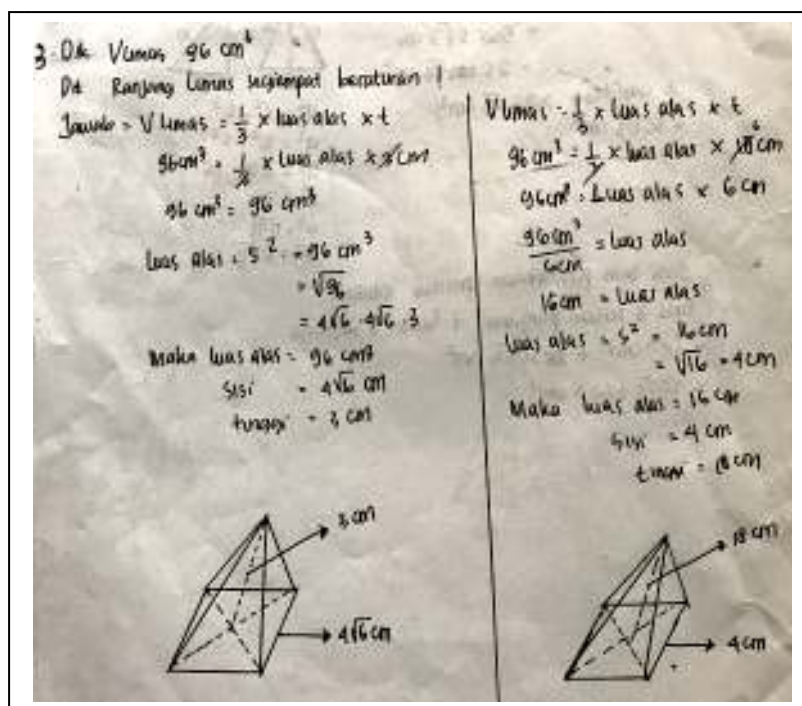 3. Dik V Limas 96 cm³
Dit Ranjang Limas segiempat beraturan !
Jawab = V Limas = 1/3 × luas alas × t
96 cm³ = 1/3 × Luas alas × 3 cm
96 cm³ = 96 cm³
Luas alas = S² = 96 cm³
= √96
= 4√6 . 4√6 . 3
Maka luas alas = 96 cm³
sisi = 4√6 cm
tinggi = 3 cm
3 cm
4√6 cm
V Limas = 1/3 × Luas alas × t
96 cm³ = 1/3 × luas alas × 18 6 cm
96 cm³ = Luas alas × 6 cm
96 cm³ / 6 cm = Luas alas
16 cm = Luas alas
Luas alas = s² = 16 cm
= √16 = 4 cm
Maka luas alas = 16 cm
sisi = 4 cm
tinggi = 18 cm
18 cm
4 cm